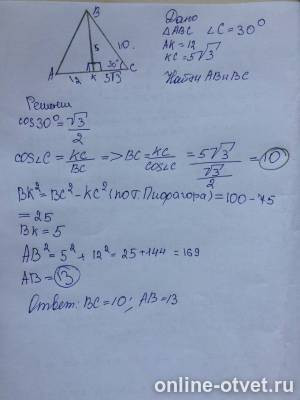 B
Дано
△ABC ∠C=30°
AK=12
KC=5√3
Найти AB и BC
5
10
30°
A
12
K
5√3
C
Решение
cos30°=√3/2
cos∠C=KC/BC => BC=KC/cos∠C=5√3/(√3/2)=10
BK²=BC²-KC² (по т. Пифагора)=100-75
=25
BK=5
AB²=5²+12²=25+144=169
AB=13
Ответ: BC=10; AB=13
online-otvet.ru